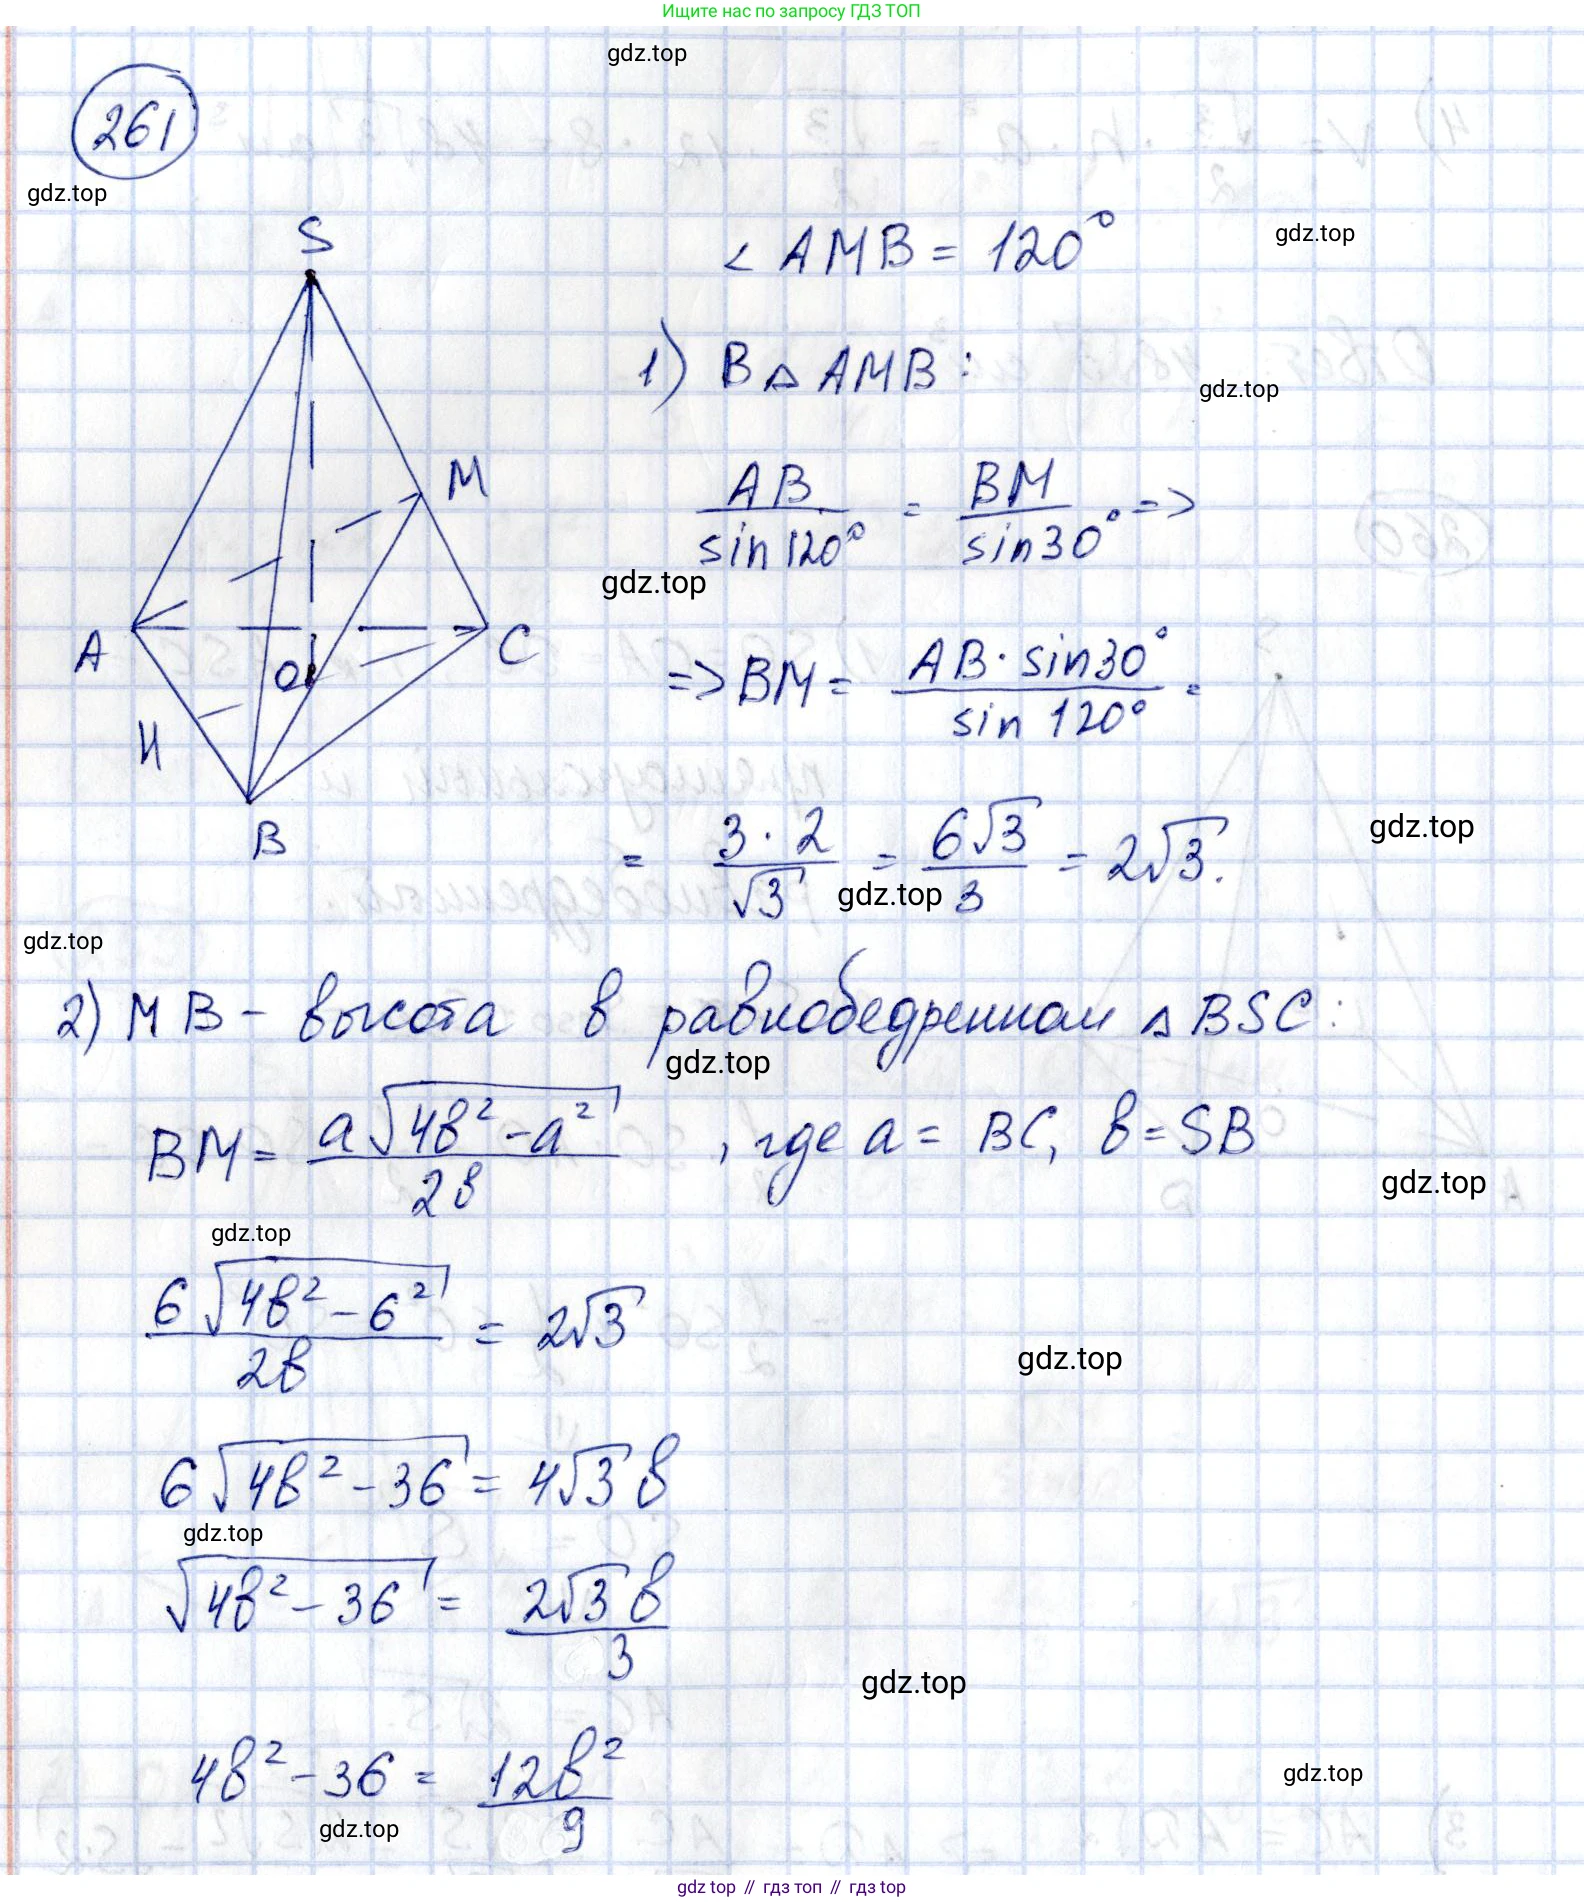 Ищите нас по запросу ГДЗ ТОП
gdz.top
261
gdz.top
S
< AMB = 120°
gdz.top
1) В △ AMB:
gdz.top
M
AB/sin120° = BM/sin30° =>
gdz.top
A
O
C
H
B
=> BM = AB · sin30°/sin 120° =
= 3 · 2/√3 = 6√3/3 = 2√3.
gdz.top
gdz.top
gdz.top
2) MB - высота в равнобедренном △ BSC:
gdz.top
BM = a√(4b² - a²)/2b , где a = BC, b = SB
gdz.top
gdz.top
6√(4b² - 6²)/2b = 2√3
gdz.top
6√(4b² - 36) = 4√3 b
gdz.top
√(4b² - 36) = 2√3 b/3
gdz.top
4b² - 36 = 12b²/9
gdz.top
gdz.top
gdz top // гдз топ // гдз top